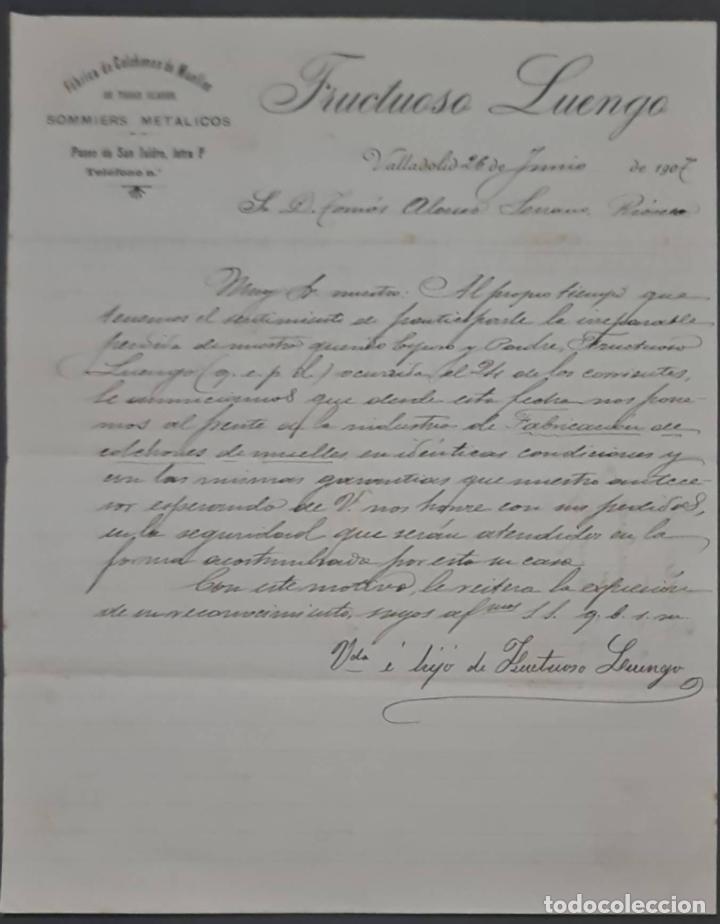 Fábrica de Colchones de Muelles
DE TODAS CLASES
SOMMIERS METALICOS
Paseo de San Isidro, letra F
Teléfono n.º
Fructuoso Luengo
Valladolid 26 de Junio de 1907
Sr. D. Tomás Alonso Serrano. Rioseco
Muy Sr. nuestro: Al propio tiempo que
tenemos el sentimiento de participarle la irreparable
perdida de nuestro querido Esposo y Padre, Fructuoso
Luengo (q. e. p. d.) ocurrida el 24 de los corrientes,
le anunciamos que desde esta fecha nos pone-
mos al frente de la industria de Fabricación de
colchones de muelles en idénticas condiciones y
con las mismas garantias que nuestro antece-
sor esperando de V. nos honre con sus pedidos,
en la seguridad que serán atendidos en la
forma acostumbrada por esta su casa
Con este motivo, le reitera la expresión
de su reconocimiento, suyos af.mos s. s. q. b. s. m.
Vda é hijo de Fructuoso Luengo
todocoleccion